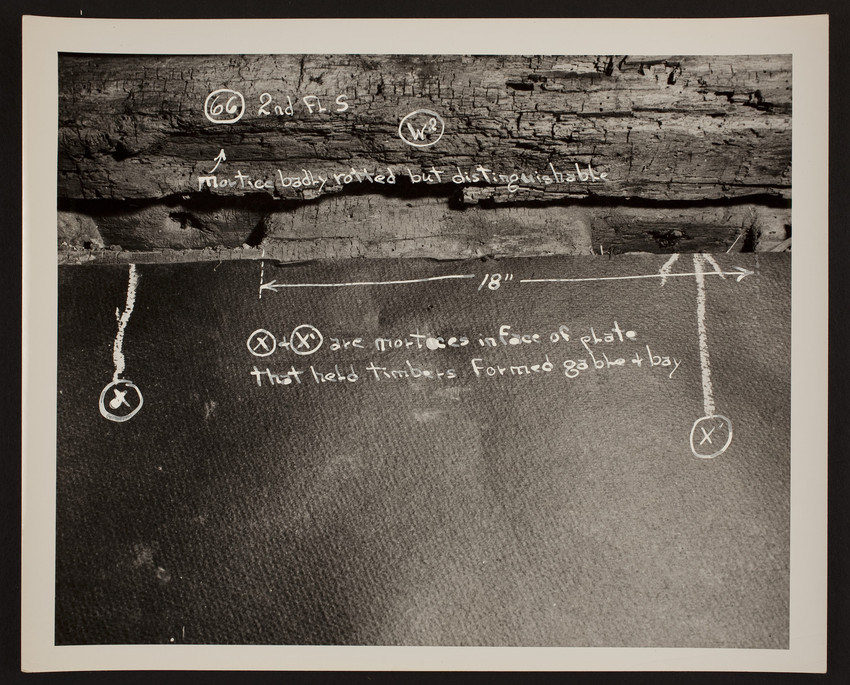 66 2nd FL S
W-2
mortice badly rotted but distinguishable
18"
X + X' are mortices in face of plate
that held timbers formed gable + bay
X
X'